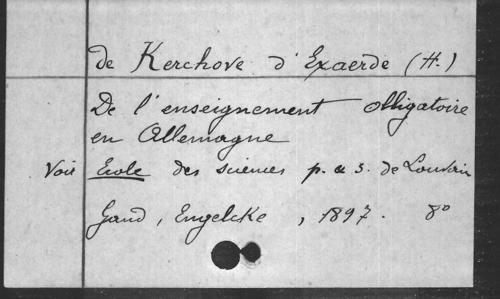 de Kerchove d'Exaerde (H.)
De l'enseignement obligatoire
en Allemagne
Voir Ecole des sciences p. & s. de Louvain
Gand, Engelcke, 1897. 8°